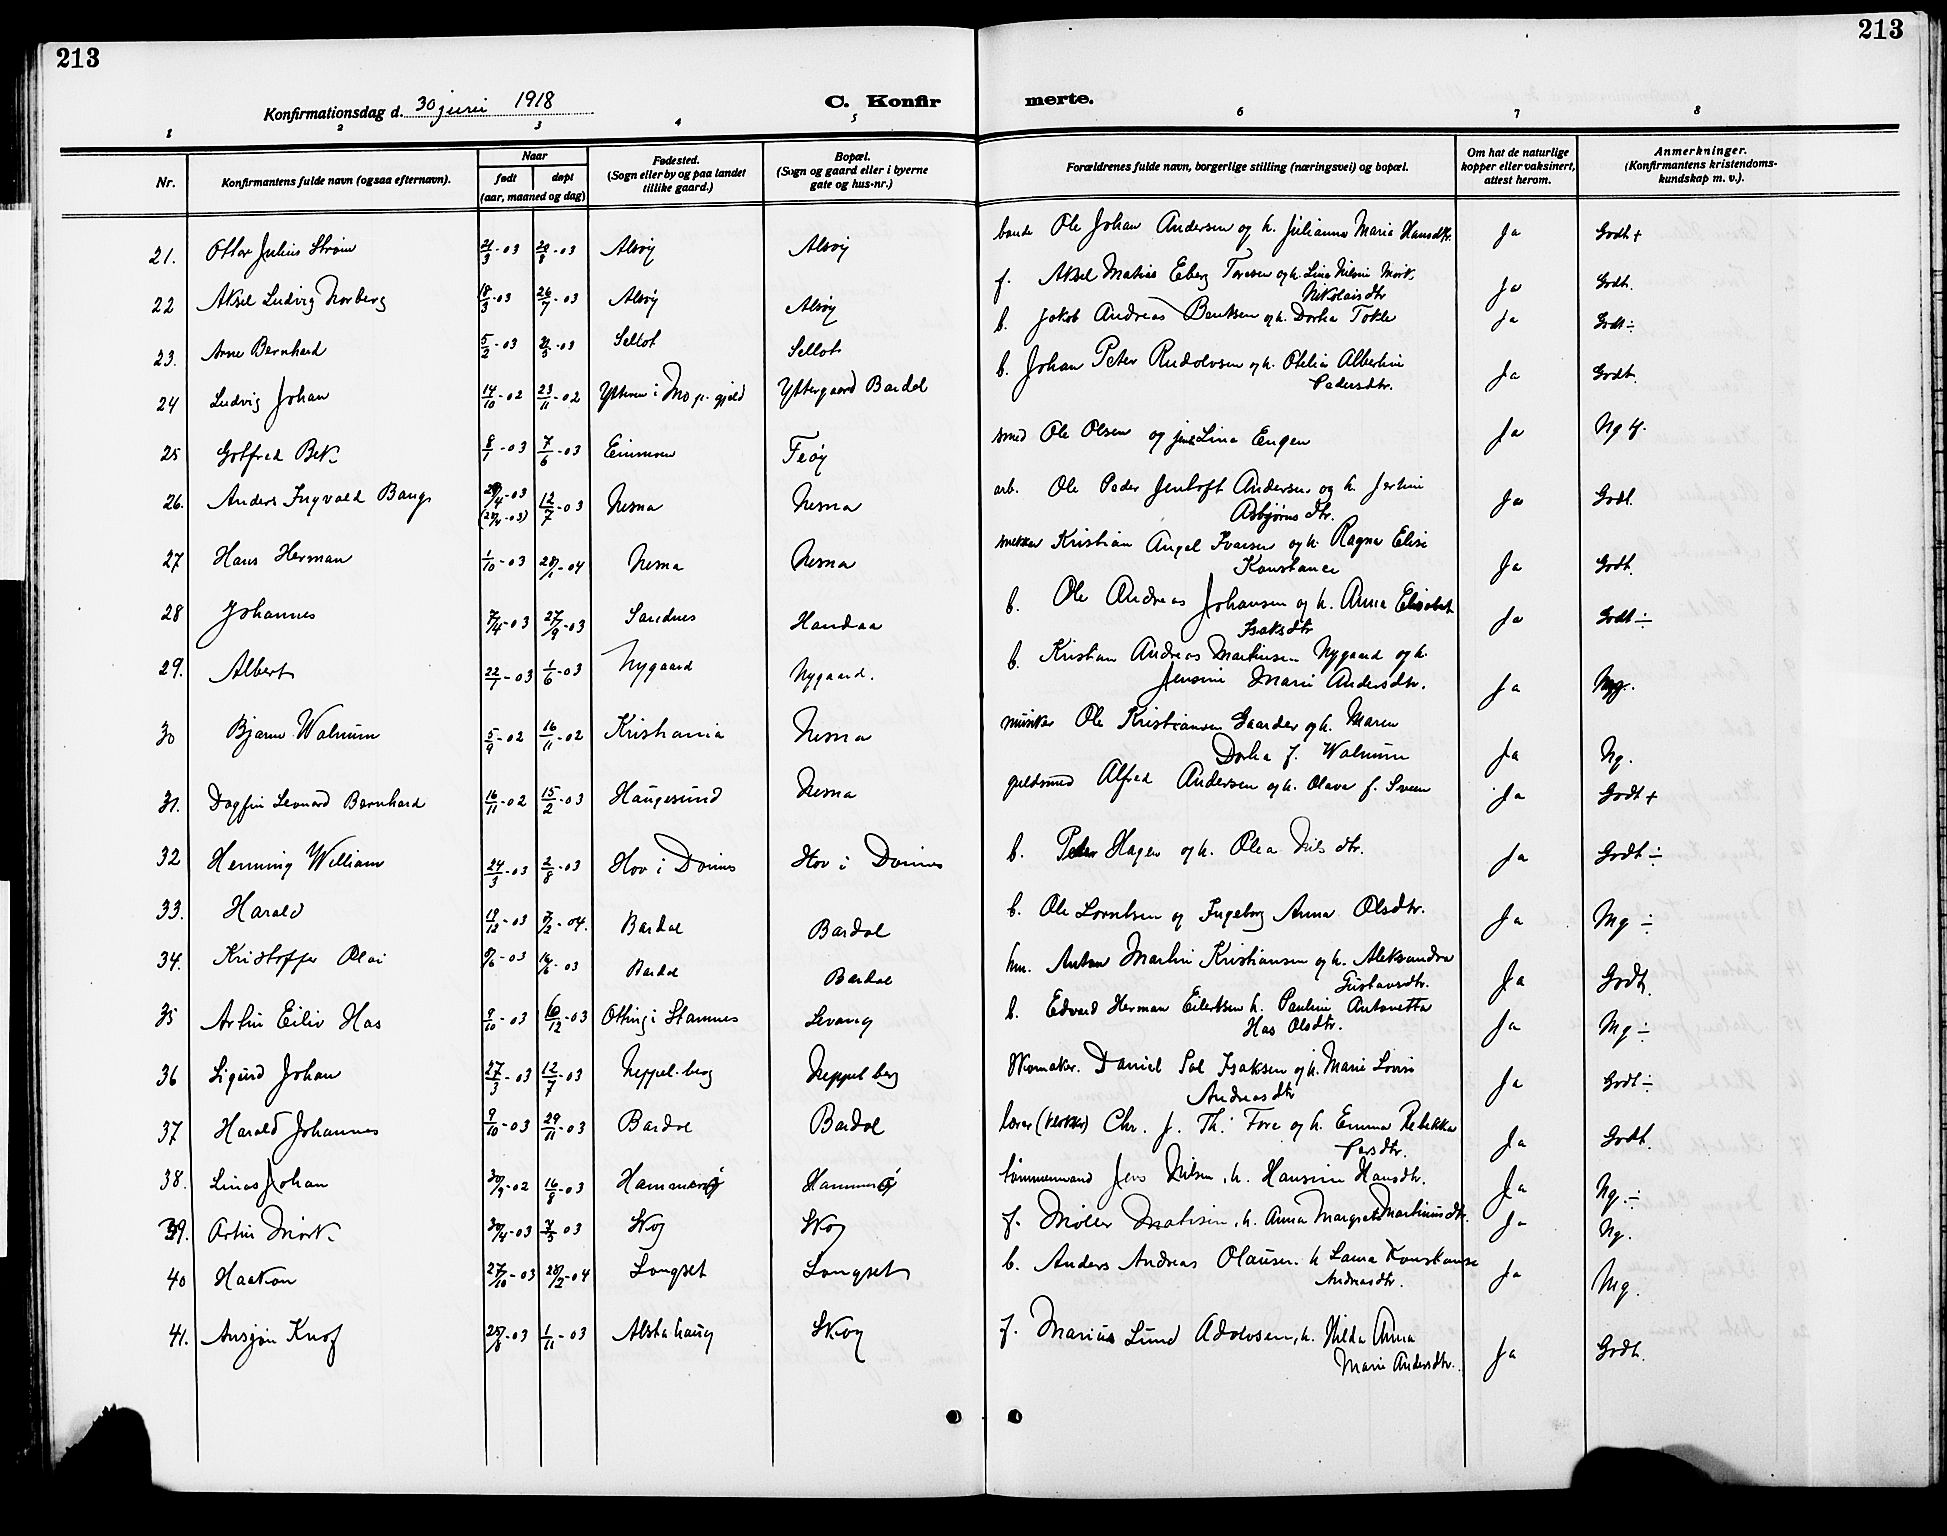 213
213
Konfirmationsdag d. 30 juni 1918
C. Konfir
merte.
1 2 3 4 5 6 7 8
Nr.
Konfirmantens fulde navn (ogsaa efternavn).
Naar
født døpt
(aar, maaned og dag)
Fødested.
(Sogn eller by og paa landet
tillike gaard.)
Bopæl.
(Sogn og gaard eller i byerne
gate og hus-nr.)
Forældrenes fulde navn, borgerlige stilling (næringsvei) og bopæl.
Om hat de naturlige
kopper eller vaksinert,
attest herom.
Anmerkninger.
(Konfirmantens kristendoms-
kundskap m. v.).
21. Ottar Julius Strøm 21/3-03 -03 Alsøy Alsøy Ole Johan Andersen og h. Julianna Maria Hansdtr. Ja Godt+
22 Aksel Ludvig Norberg 18/3-03 26/7-03 Alsøy Alsøy f. Aksel Matias Eberg Toresen og h. Lina Nilsine Mørk
Nikolaisdtr Ja Godt.
23. Arne Bernhard 5/2-03 21/5-03 Selbot Selbot b. Jakob Andreas Bentsen og h. Dortea Tokle Ja Godt÷
24 Ludvig Johan 14/10-02 23/11-02 Ytteren i Mo p.gjeld Yttergaard Bardal b. Johan Peter Rudolvsen og h. Otelia Albertine
Pedersdtr. Ja Godt.
25 Gotfred Bek. 8/1-03 7/6-03 Feøy smed Ole Olsen og Lina Engen Ja Ng
26. Anders Ingvald Bang 12/7-03 Nesna Nesna arb. Ole Peder Jentoft Andersen og h. Jertine
Asbjørnsdtr. Ja Godt.
27 Hans Herman 1/10-03 28/1-04 Nesna Nesna snekker Kristian Angel Ivarsen og h. Ragna Elise
Konstance Ja Godt.
28 Johannes 7/4-03 27/9-03 Sandnes Handaa b. Ole Andreas Johansen og h. Anna Elisabet
Isaksdtr Ja Godt÷
29. Albert 22/1-03 1/6-03 Nygaard Nygaard. b. Kristian Andreas Martinsen Nygaard og h.
Jensine Marie Andersdtr. Ja Mg.
30 Bjarne Walnum 5/9-02 16/11-02 Kristiania Nesna musiker Ole Kristiansen Gaarder og h. Maren
Dortea f. Walnum Ja Ng.
31. Dagfin Leonard Bernhard 16/11-02 15/2-03 Haugesund Nesna guldsmed Alfred Andersen og h. Olava f. Sveen Ja Godt+
32 Henning William 24/3-03 2/8-03 Hov i Dønnes Hov i Dønnes b. Peter Hagen og h. Olea Nilsdtr. Ja Godt÷
33. Harald 19/12-03 7/2-04. Bardal Bardal b. Ole Lorntsen og Ingeborg Anna Olsdtr. Ja Mg÷
34. Kristoffer Olai -03 -03 Bardal Bardal hm. Anton Martin Kristiansen og h. Aleksandra
Gustavsdtr. Ja Godt.
35 Artur Eiliv Has 9/10-03 6/12-03 Otting i Stamnes Levang b. Edvard Herman Eilertsen h. Pauline Antonetta
Has Olsdtr. Ja Mg÷
36 Sigurd Johan 27/3-03 12/7-03 Neppelberg Neppelberg skomaker. Daniel Sal Isaksen og h. Marie Lovise
Andreasdtr Ja Godt÷
37 Harald Johannes 9/10-03 29/11-03 Bardal Bardal lærer (klokker) Chr. J. Th. Fore og h. Emma Rebekka
Larsdtr. Ja Godt.
38. Linas Johan 30/9-02 16/8-03 Hammarø Hammerø tømmermand Jens Nilsen, h. Hansine Hansdtr. Ja Ng.÷
39. Artur Mørk. 30/4-03 7/5-03 Skog Skog f. Møller Matisen, h. Anna Margrete Martinusdtr. Ja Ng.
40 Haakon 27/10-03 28/2-04 Langset Langset b. Anders Andreas Olausen. h Laura Konstanse
Andreasdtr. Ja Mg.
41. Ansgar Knof 25/8-03 1/11-03 Alstahaug Skog f. Marius Lund Adolvsen, h. Hilda Anna
Marie Andersdtr. Ja Godt.